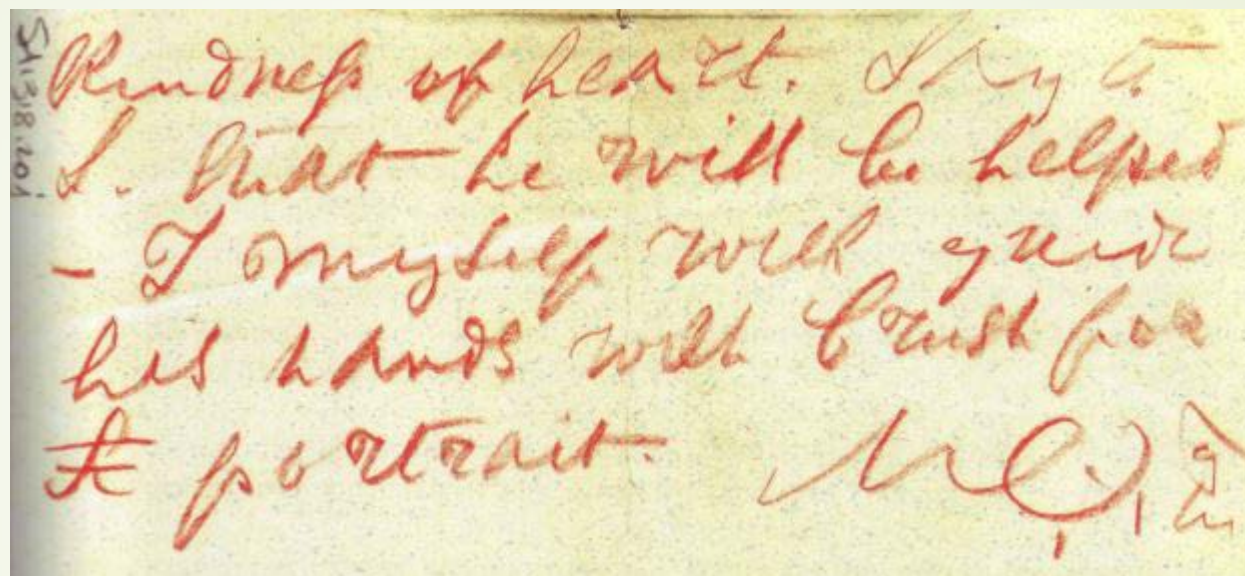 Kindness of heart. Say to
S. that he will be helped
- I myself will guide
his hands with brush for
portrait.